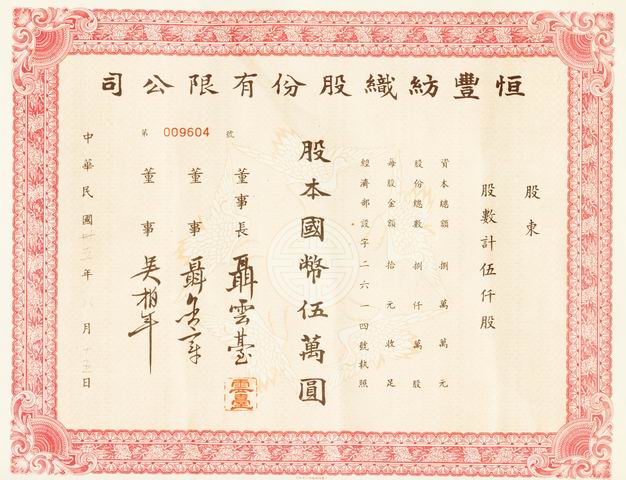 恒豐紡織股份有限公司
股東
股數計伍仟股
資本總額 捌萬萬元
股份總數 捌仟萬股
每股金額 拾元收足
經濟部設字二六一四號執照
股本國幣伍萬圓
董事長 聶雲臺
雲臺
董事
董事 吳柏年
第 009604 號
中華民國卅五年八月十五日